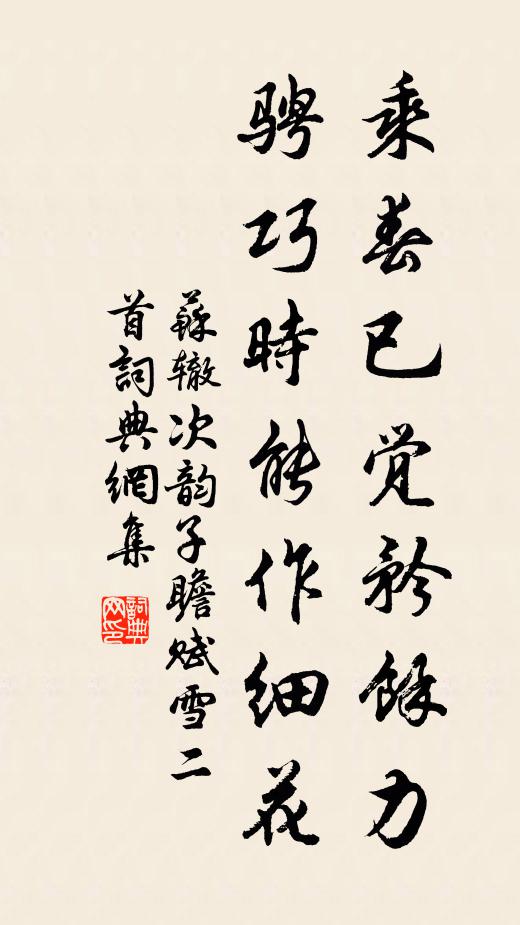 乘春已觉矜餘力
骋巧時能作细花
蘇辙次韵子瞻赋雪二
首詞典網集
詞典
网印